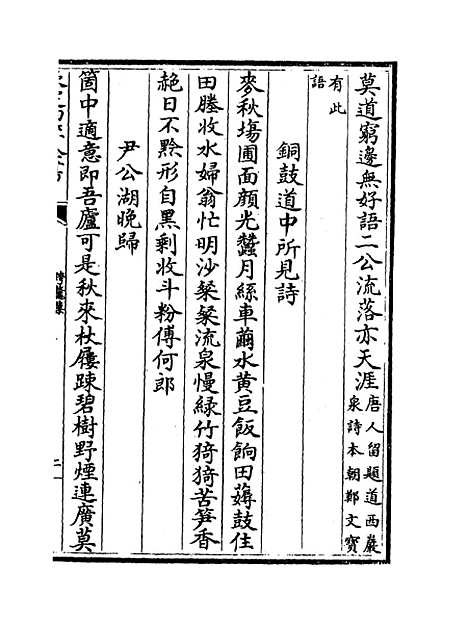 莫道窮邊無好語二公流落亦天涯唐人留題道西巖
泉詩本朝鄭文寶
有此
語
銅鼓道中所見詩
麥秋塲圃面顔光蠶月絲車繭水黄豆飯餉田薅鼓住
田塍收水婦翁忙明沙粲粲流泉慢緑竹猗猗苦笋香
赩日不黥形自黑剩收斗粉傅何郎
尹公湖晚歸
箇中適意即吾廬可是秋來杖屨踈碧樹野煙連廣莫